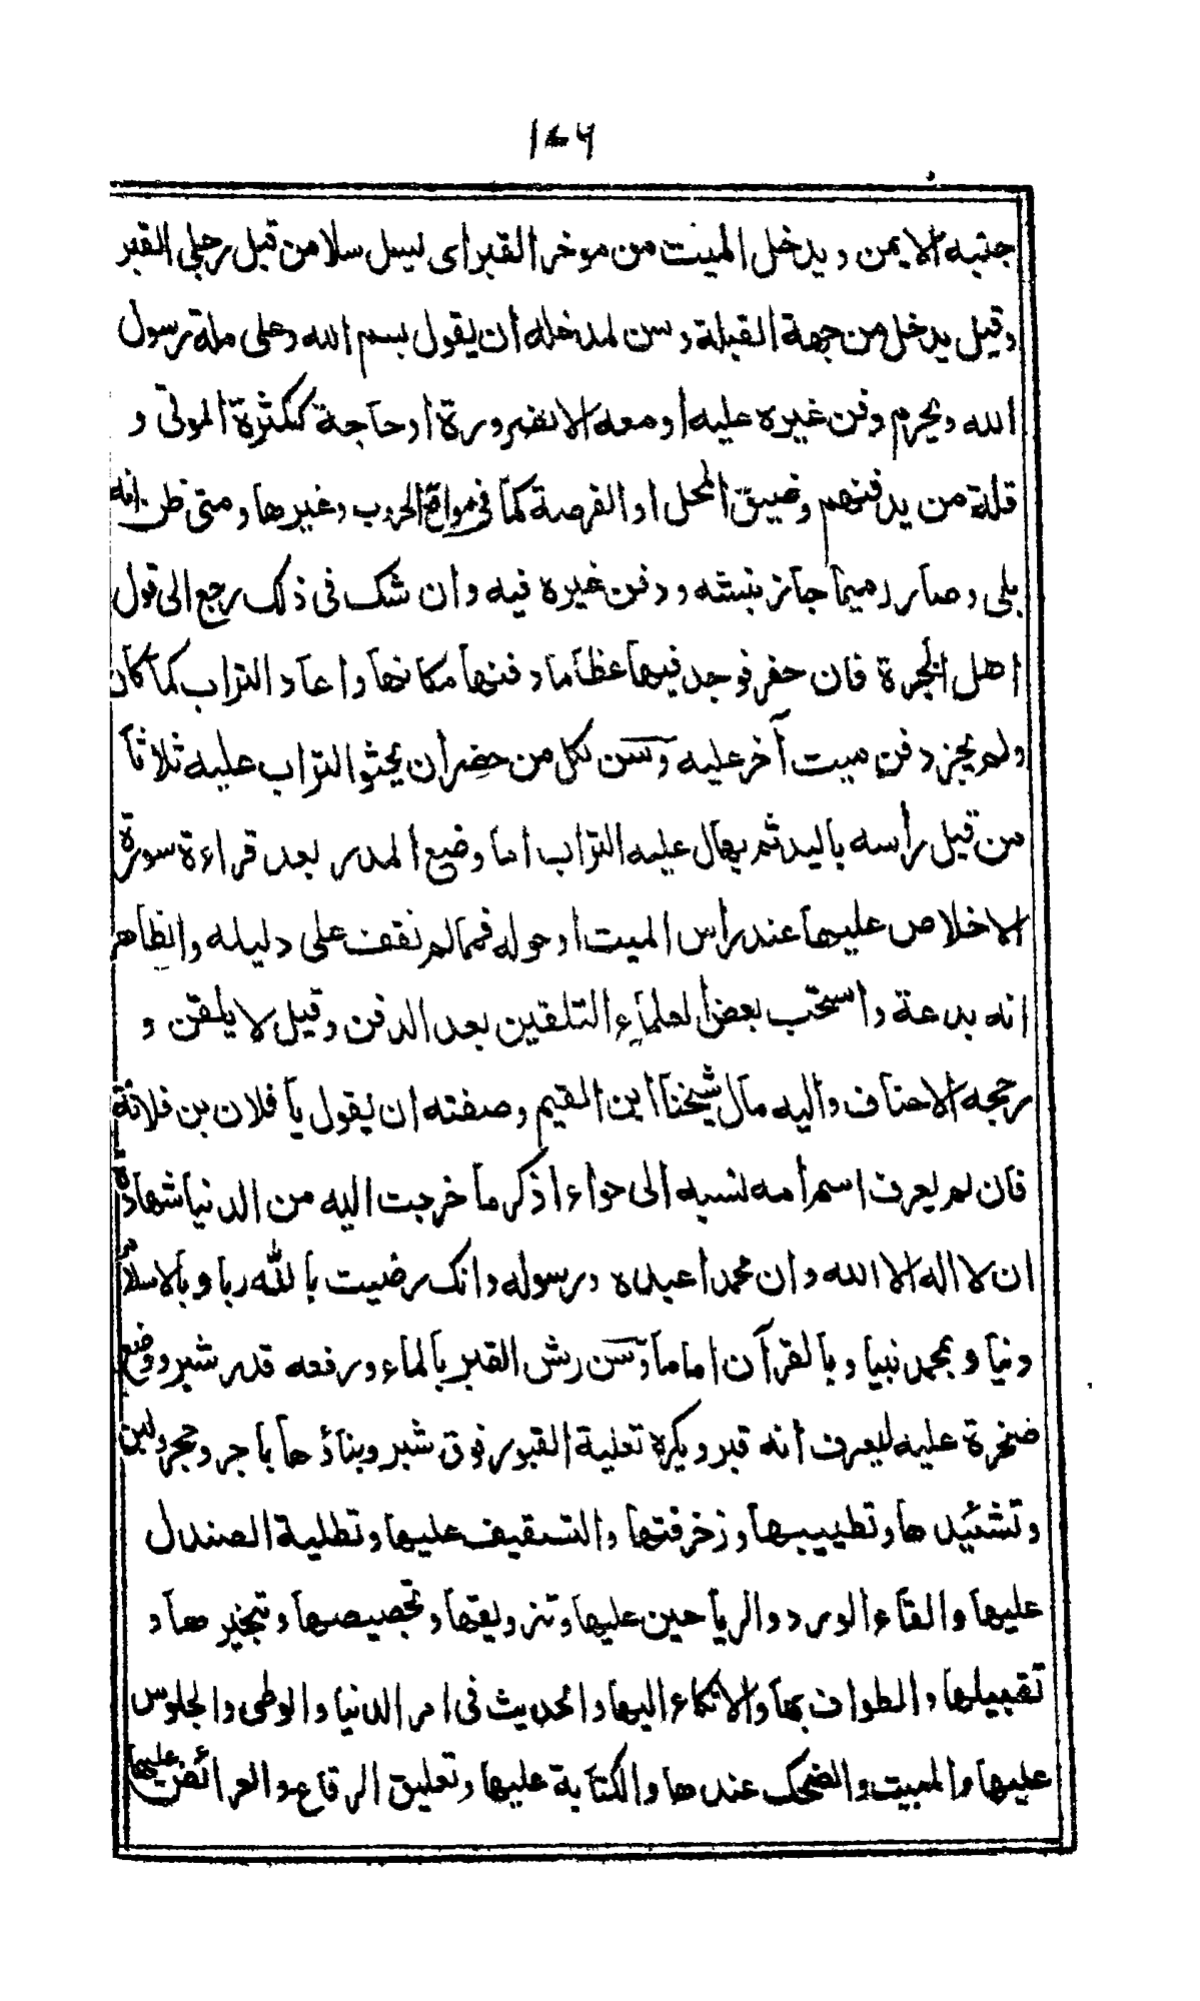 ١٧٦
جنبه الايمن ويدخل الميت من موخر القبر اى ليسل سلا من قبل رجلى القبر
وقيل يدخل من جهة القبلة وسن لمدخله ان يقول بسم الله وعلى ملة رسول
الله ويحرم دفن غيره عليه او معه الا لضرورة او حاجة ككثرة الموتى و
قلة من يدفنهم وضيق المحل او الفرصة كما فى مواقع الحروب وغيرها ومتى ظن انه
بلى وصار رميما جاز نبشه ودفن غيره فيه وان شك فى ذلك رجع الى قول
اهل الخبرة فان حفر فوجد فيها عظاما دفنها مكانها واعاد التراب كما كان
ولم يجز دفن ميت آخر عليه وسن لكل من حضر أن يحثو التراب عليه ثلاثا
من قبل رأسه باليد ثم يهال عليه التراب اما وضع المدر بعد قراءة سورة
الاخلاص عليها عند رأس الميت او حوله فمما لم نقف على دليله والظاهر
انه بدعة واستحب بعض العلماء التلقين بعد الدفن وقيل لا يلقن و
رجحه الاحناف واليه مال شيخنا ابن القيم وصفته ان يقول يا فلان بن فلانة
فان لم يعرف اسم أمه نسبه الى حواء اذكر ما خرجت اليه من الدنيا شهادة
ان لا اله الا الله وان محمدا عبده ورسوله وانك رضيت بالله ربا وبالاسلام
دنيا و بمحمد نبيا وبالقرآن اماما وسن رش القبر بالماء ورفعه قدر شبر ووضع
ضخرة عليه ليعرف انه قبر ويكره تعلية القبور فوق شبر وبناؤها بآجر وحجر ولبن
وتشئيدها وتطييبها وزخرفتها والتسقيف عليها وتطلية الصندل
عليها والقاء الورد والرياحين عليها وتزويقها وتجصيصها وتبخيرها و
تقبيلها والطواف بها والاتكاء اليها والحديث فى امر الدنيا والوطى والجلوس
عليها والمبيت والضحك عندها والكتابة عليها وتعليق الرقاع والعرائض عليها